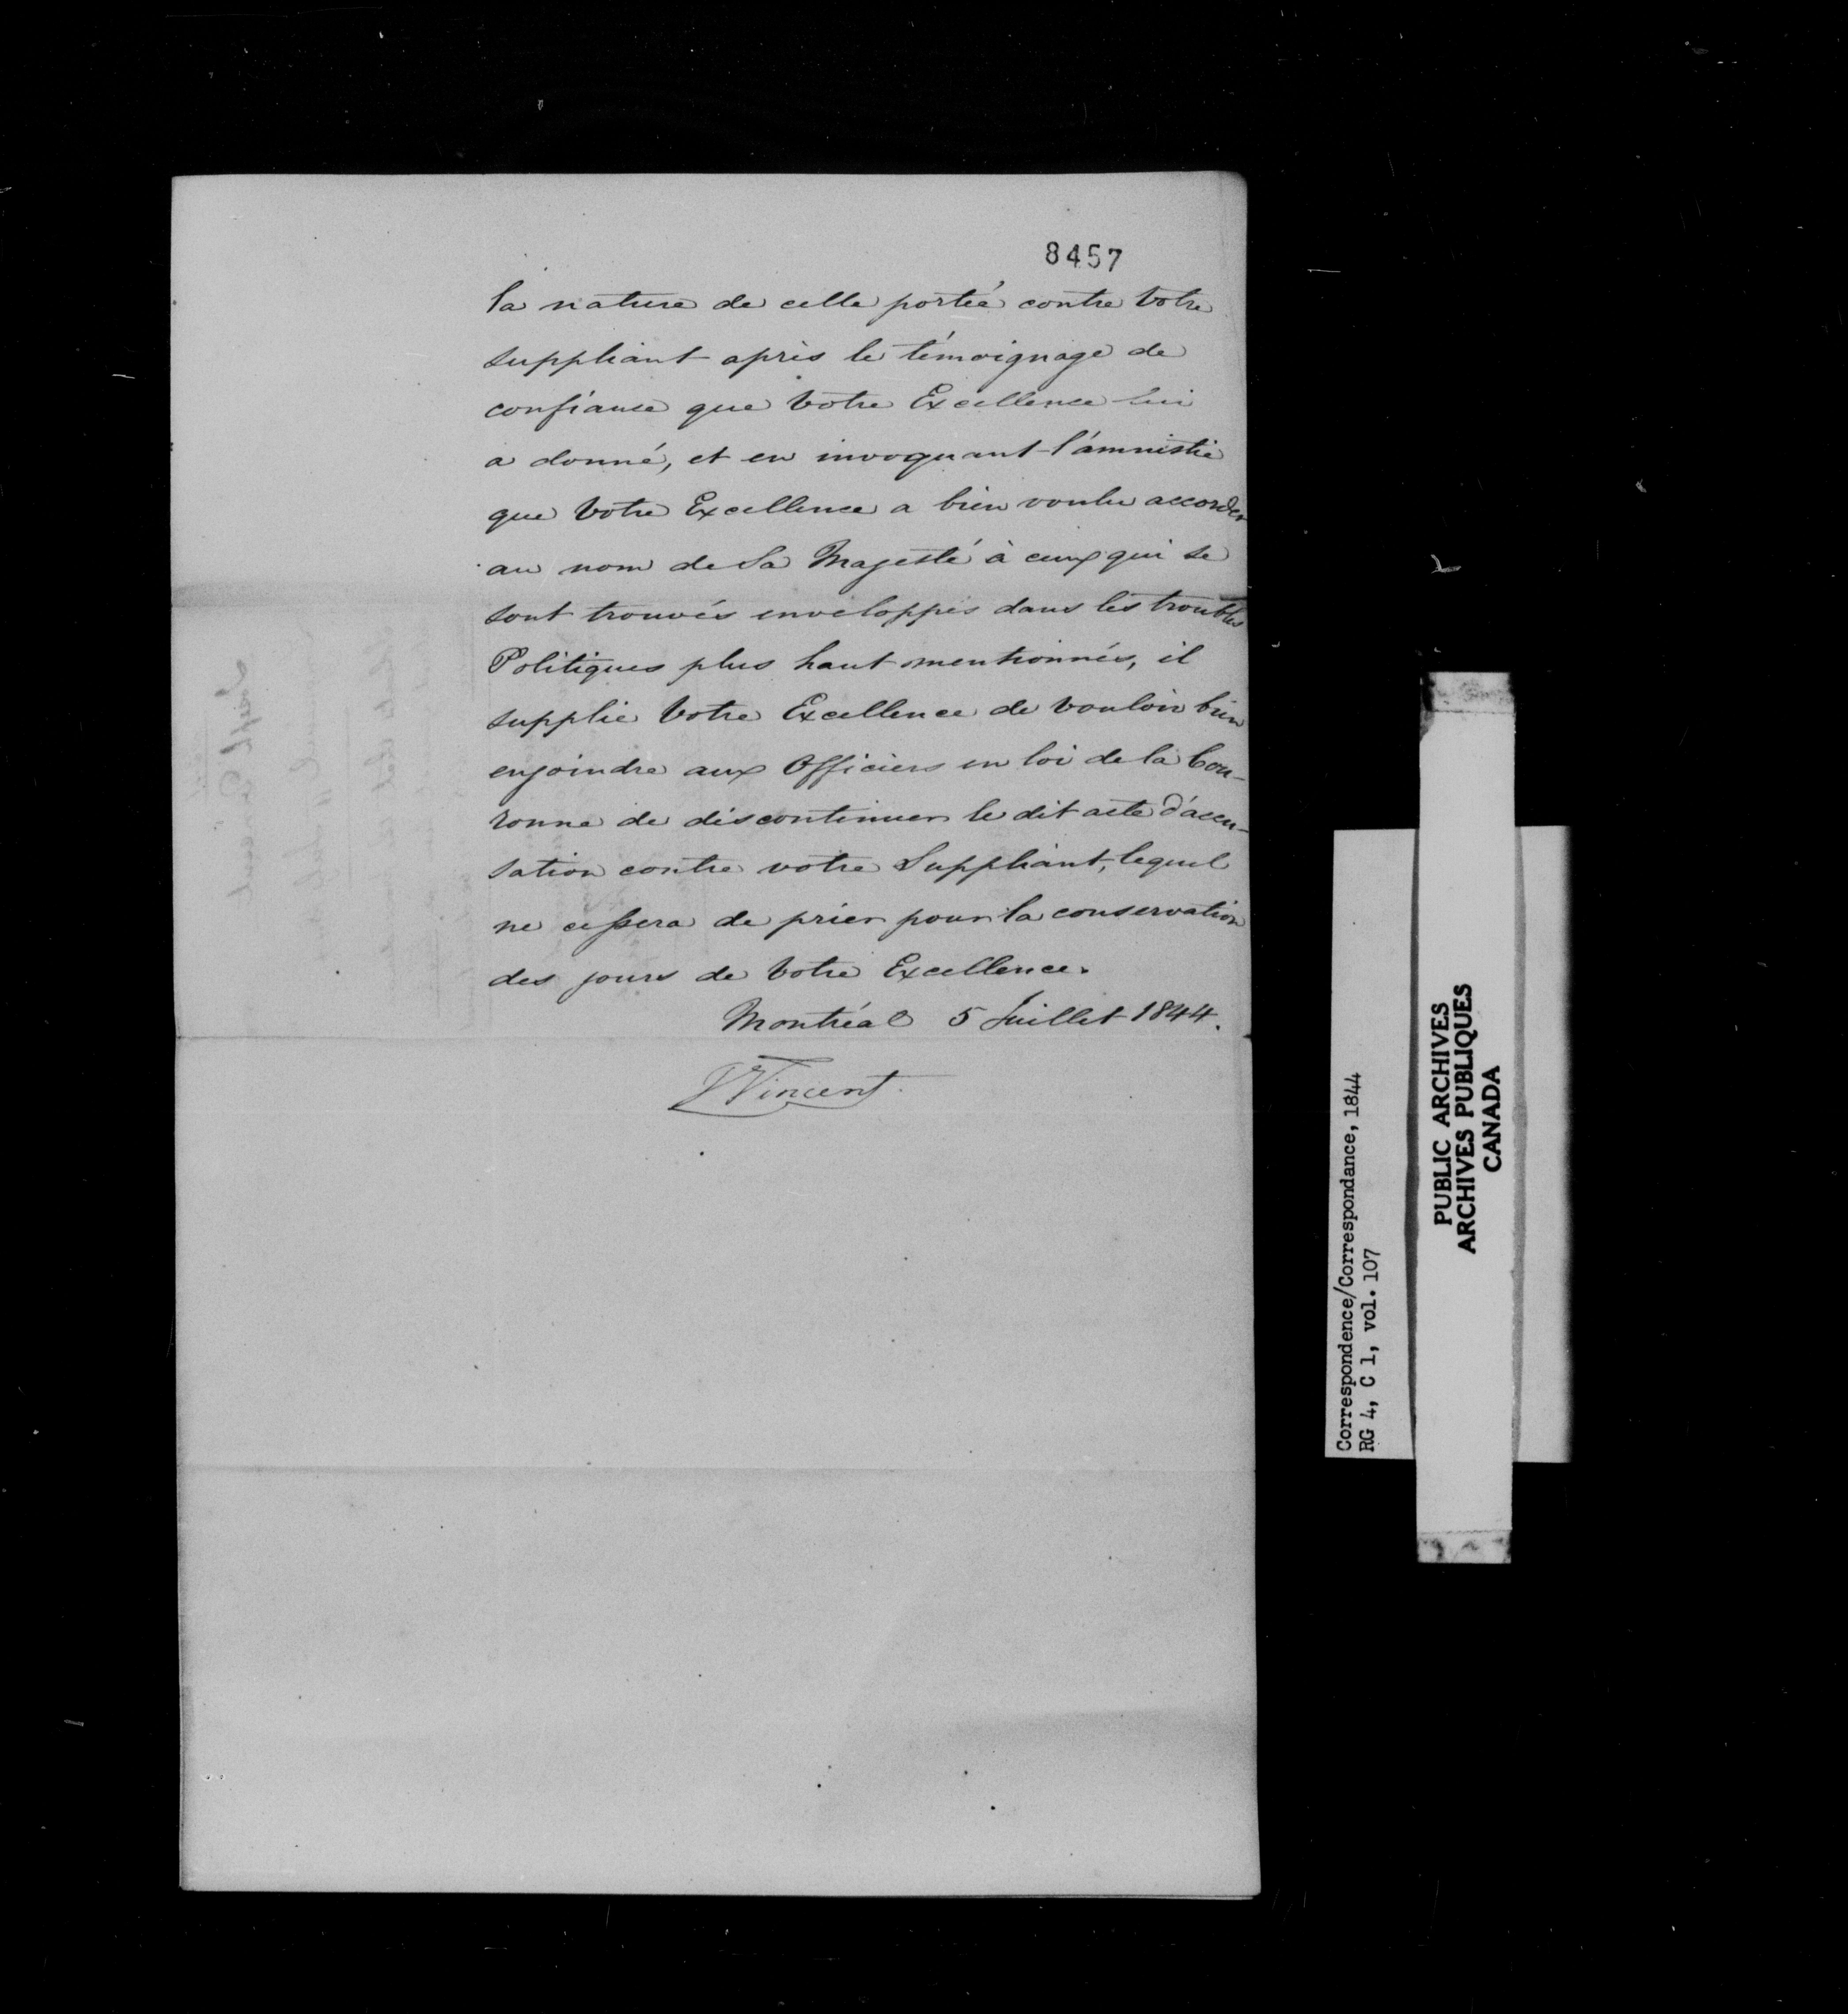 8457
la nature de celle portée contre Votre
suppliant après le témoignage de
confiance que Votre Excellence lui
a donné, et en invoquant l'amnistie
que Votre Excellence a bien voulu accorder
au nom de Sa Majesté à ceux qui se
sont trouvés enveloppés dans les troubles
Politiques plus haut mentionnés, il
supplie Votre Excellence de vouloir bien
enjoindre aux Officiers en loi de la Cou-
ronne de discontinuer le dit acte d'accu-
sation contre votre Suppliant, lequel
ne cessera de prier pour la conservation
des jours de Votre Excellence.
Montréal 5 Juillet 1844.
Vincent
Correspondence/Correspondance, 1844
RG 4, C 1, vol. 107
PUBLIC ARCHIVES
ARCHIVES PUBLIQUES
CANADA